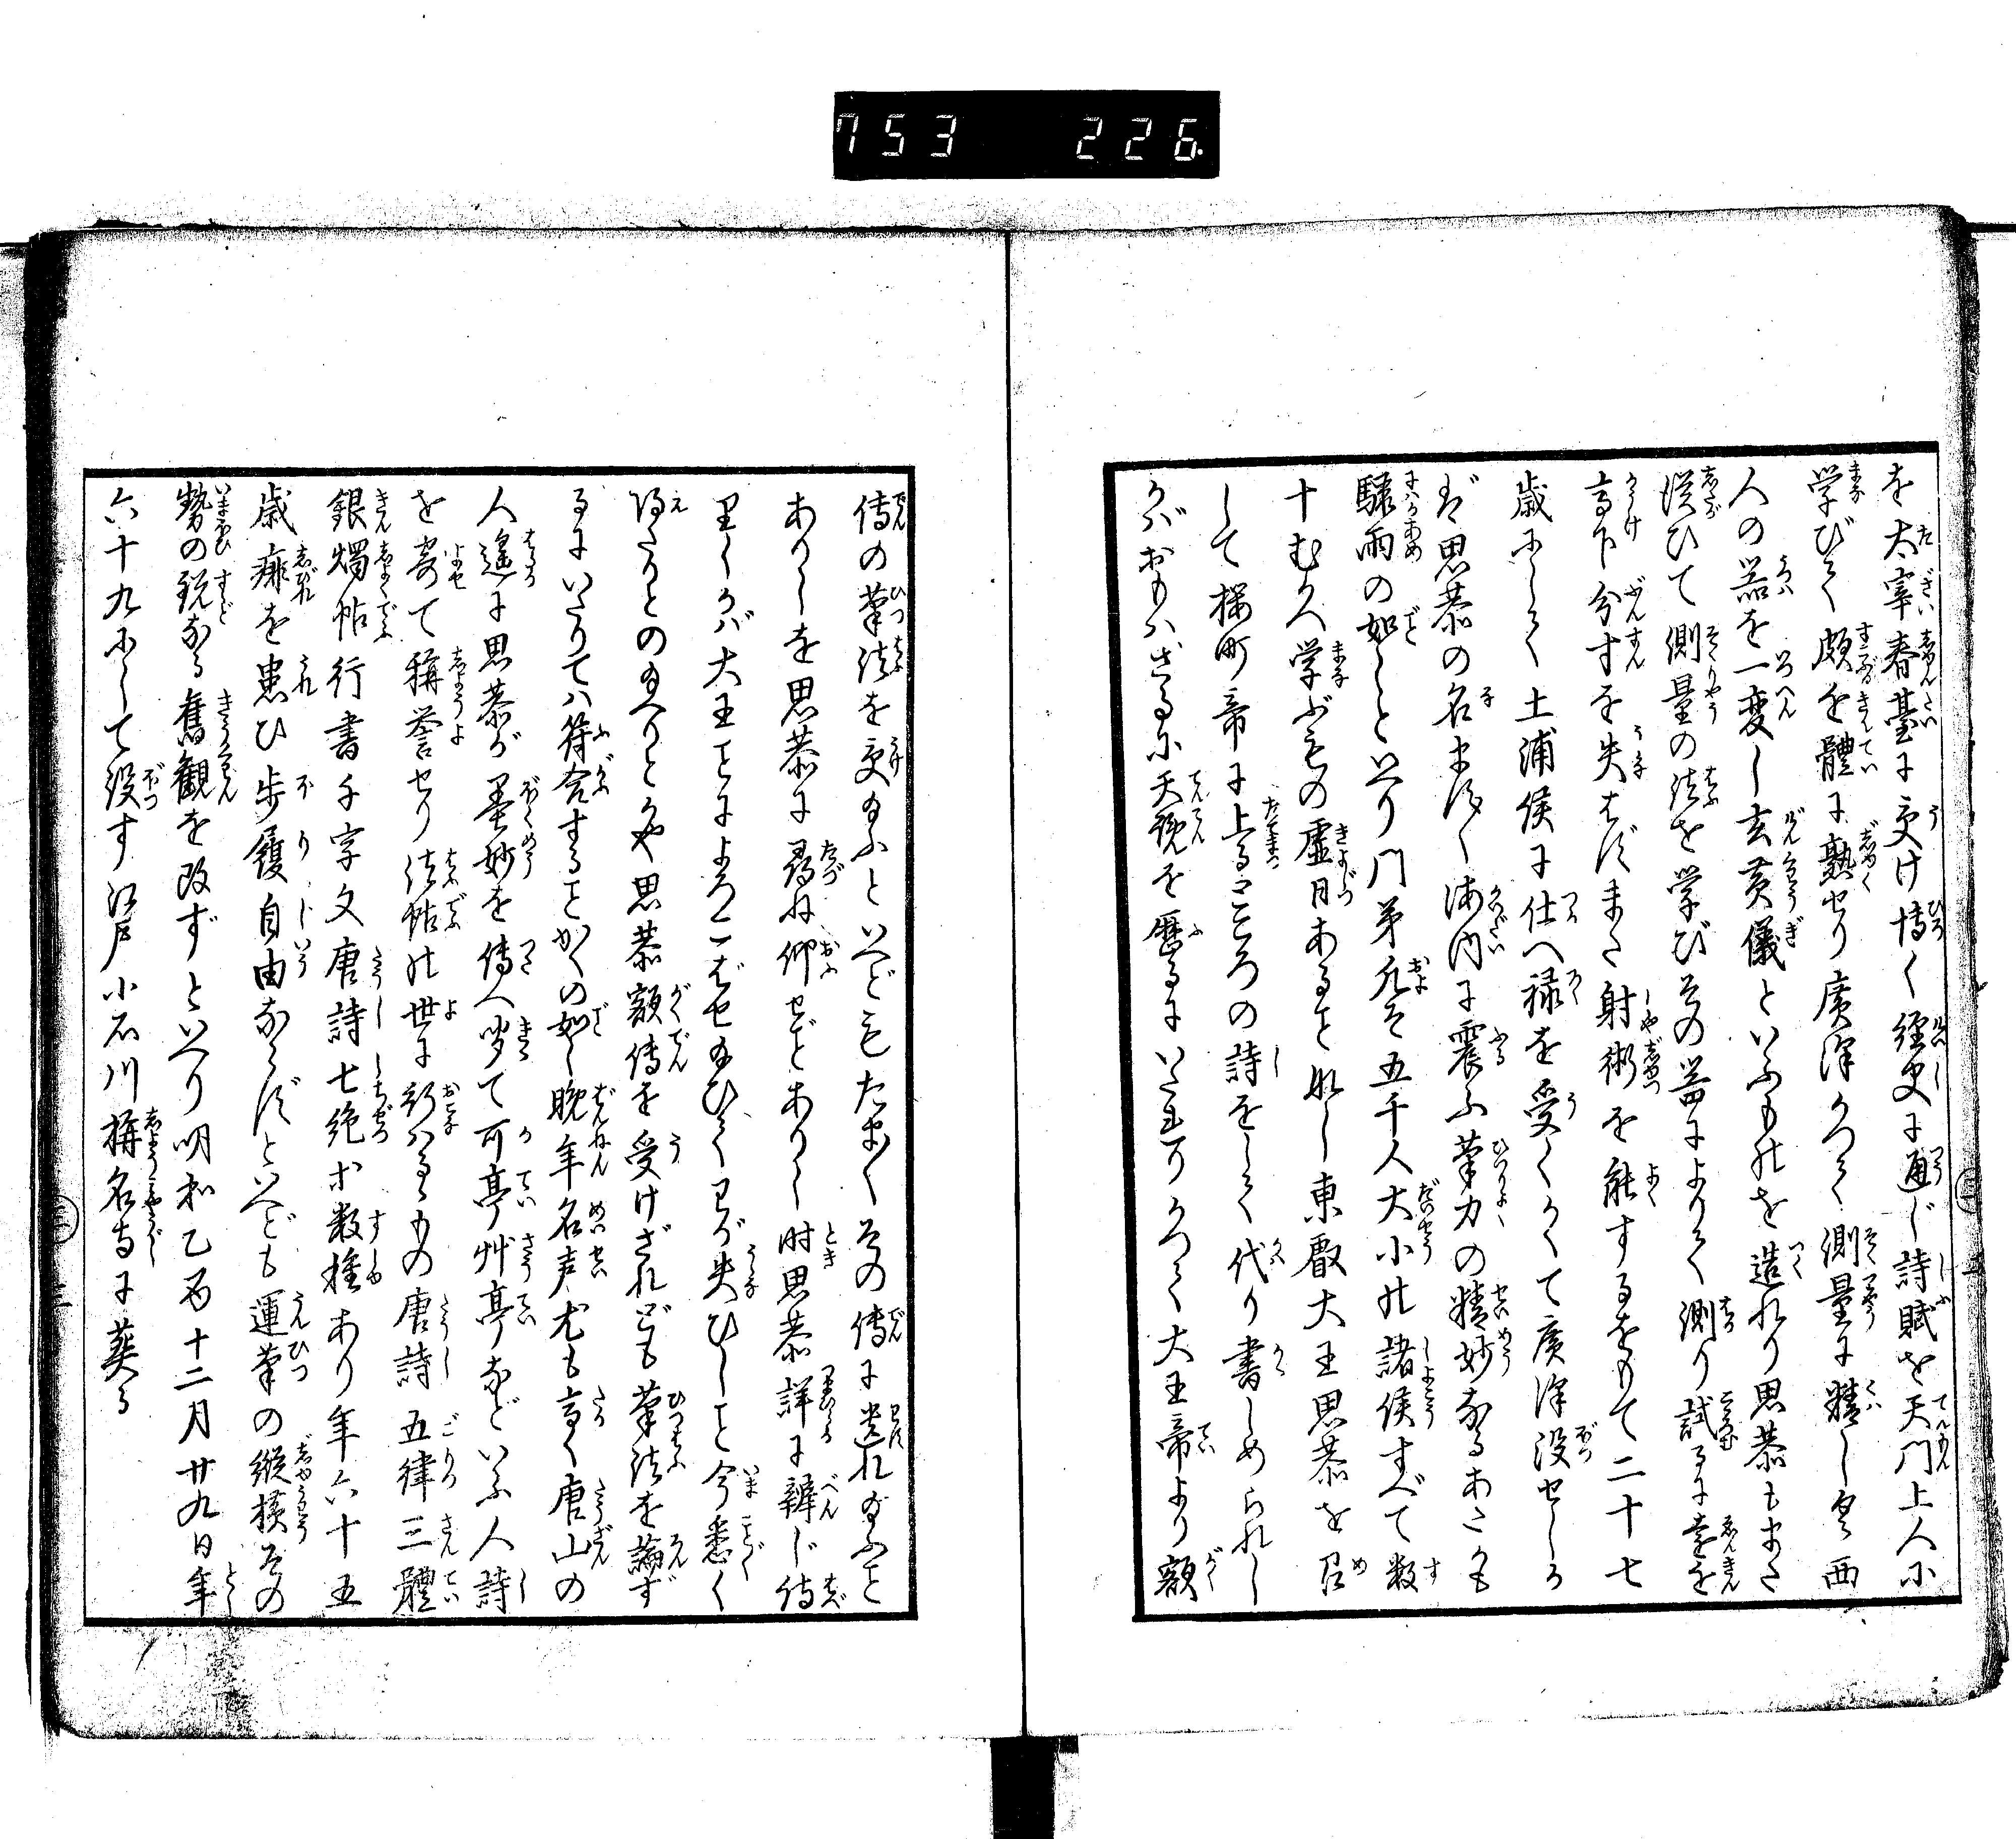 753 226
を太宰春臺に受け博く經史に通じ詩賦を天門上人に
学びて頗を體に熟せり廣澤かつて測量に精しく西
人の器を一変し玄黄儀といふものを造れり思恭もまた
従ひて測量の法を学びその器によりて測り試るに遠近
高下分寸を失はずまた射術を能するをもて二十七
歳にして土浦侯に仕へ禄を受くかくて廣澤没せしか
ば思恭の名ますます海内に震ふ筆力の精妙なるあたかも
驟雨の如しといへり門弟凡そ五千人大小の諸侯すべて数
十むかへ学ぶもの虚月あることなし東叡大王思恭を召
して桜町帝に上るところの詩をして代り書しめられし
かばおもはざるに天覧を歴るにいたれりかつて大王帝より額
傳の筆法を受給ふといへどもたまたまその傳に遺れ給ふこと
ありしを思恭に尋ね仰せごとありし時思恭詳に辨じ侍
りしかば大王ことによろこばせ給ひてわが失ひしこと今悉く
得たりとの給へりとかや思恭額傳を受けざれども筆法を論ず
るにいたりては符合することかくの如し晩年名声尤も高く唐山の
人遙に思恭が墨妙を傳へ聞て可亭艸亭などいふ人詩
を寄て稱誉せり法帖の世に行はるゝもの唐詩五律三體
銀燭帖行書千字文唐詩七絶等数種あり年六十五
歳痱を患ひ歩履自由ならずといへども運筆の縦横その
勢の鋭なる舊観を改ずといへり明和乙酉十二月廿九日年
六十九にして没す江戸小石川稱名寺に葬る